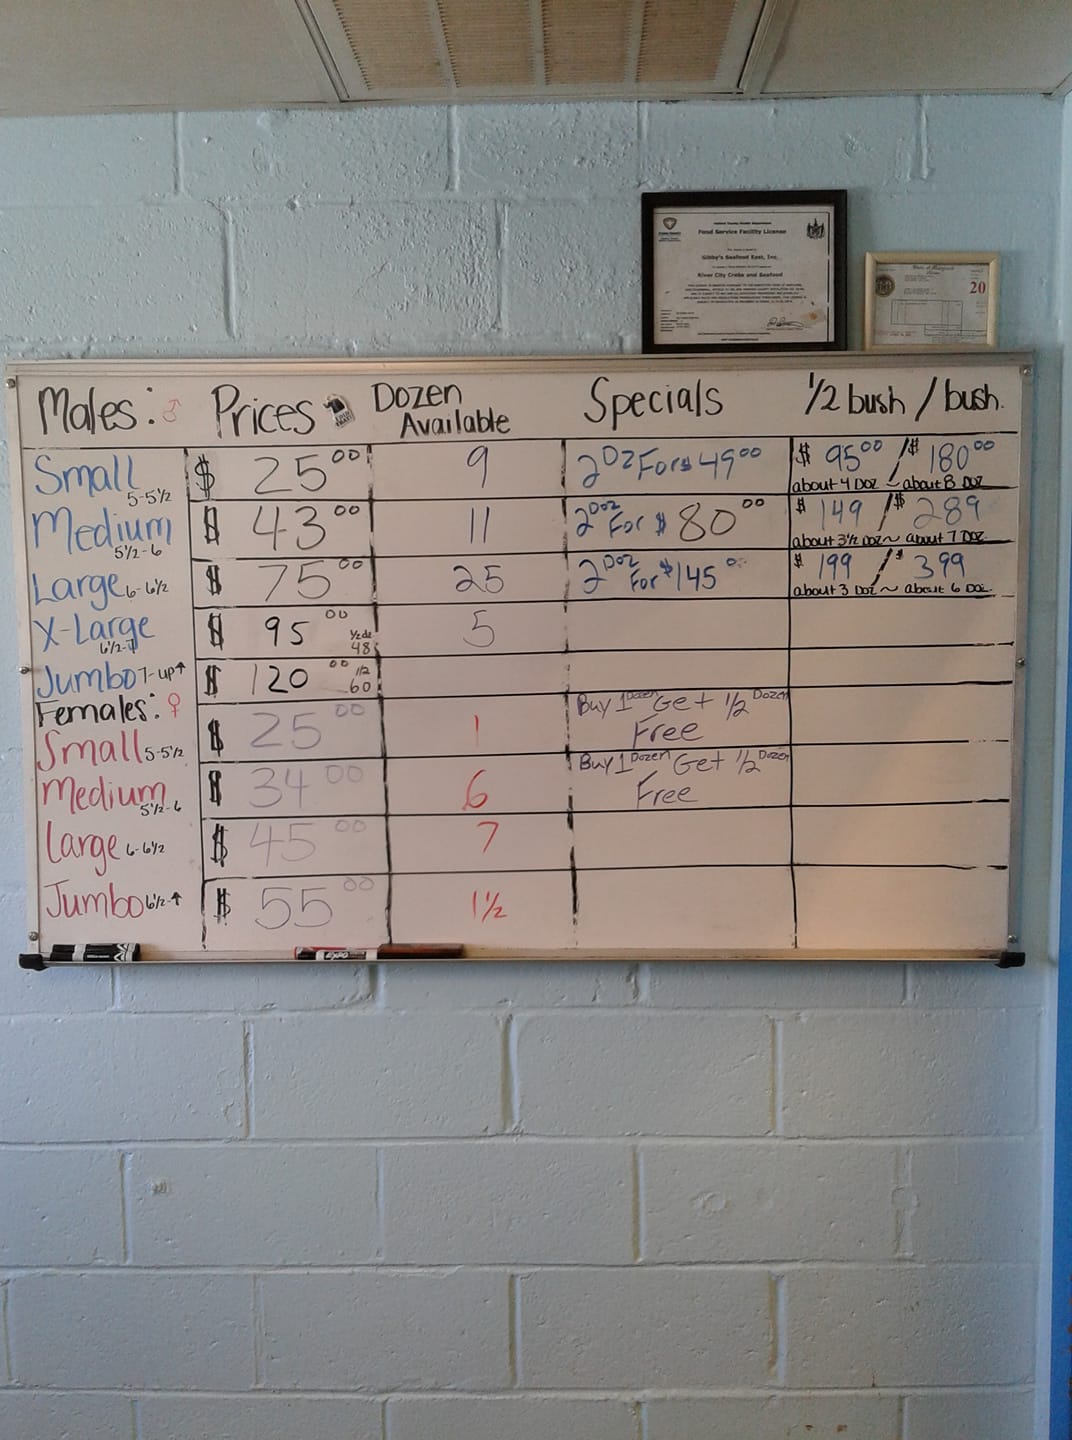 Food Service Facility License
Gibby's Seafood East, Inc.
River City Crabs and Seafood
20
Males: ♂ Prices Dozen Available Specials 1/2 bush / bush.
Small 5-5½ $ 25 00 9 2 DZ For $ 49 00 $ 95 00 / $ 180 00
about 4 Doz ~ about 8 Doz
Medium 5½-6 $ 43 00 11 2 Doz For $ 80 00 $ 149 / $ 289
about 3½ Doz ~ about 7 Doz
Large 6-6½ $ 75 00 25 2 Doz For $ 145 $ 199 / $ 399
about 3 Doz ~ about 6 Doz.
X-Large 6½-7 $ 95 00 ½ dz 48 5
Jumbo 7-up↑ $ 120 00 1/2 60
Females: ♀
Small 5-5½ $ 25 00 1 Buy 1 Dozen Get ½ Dozen Free
Medium 5½-6 $ 34 00 6 Buy 1 Dozen Get ½ Dozen Free
Large 6-6½ $ 45 00 7
Jumbo 6½-↑ $ 55 00 1½
EXPO